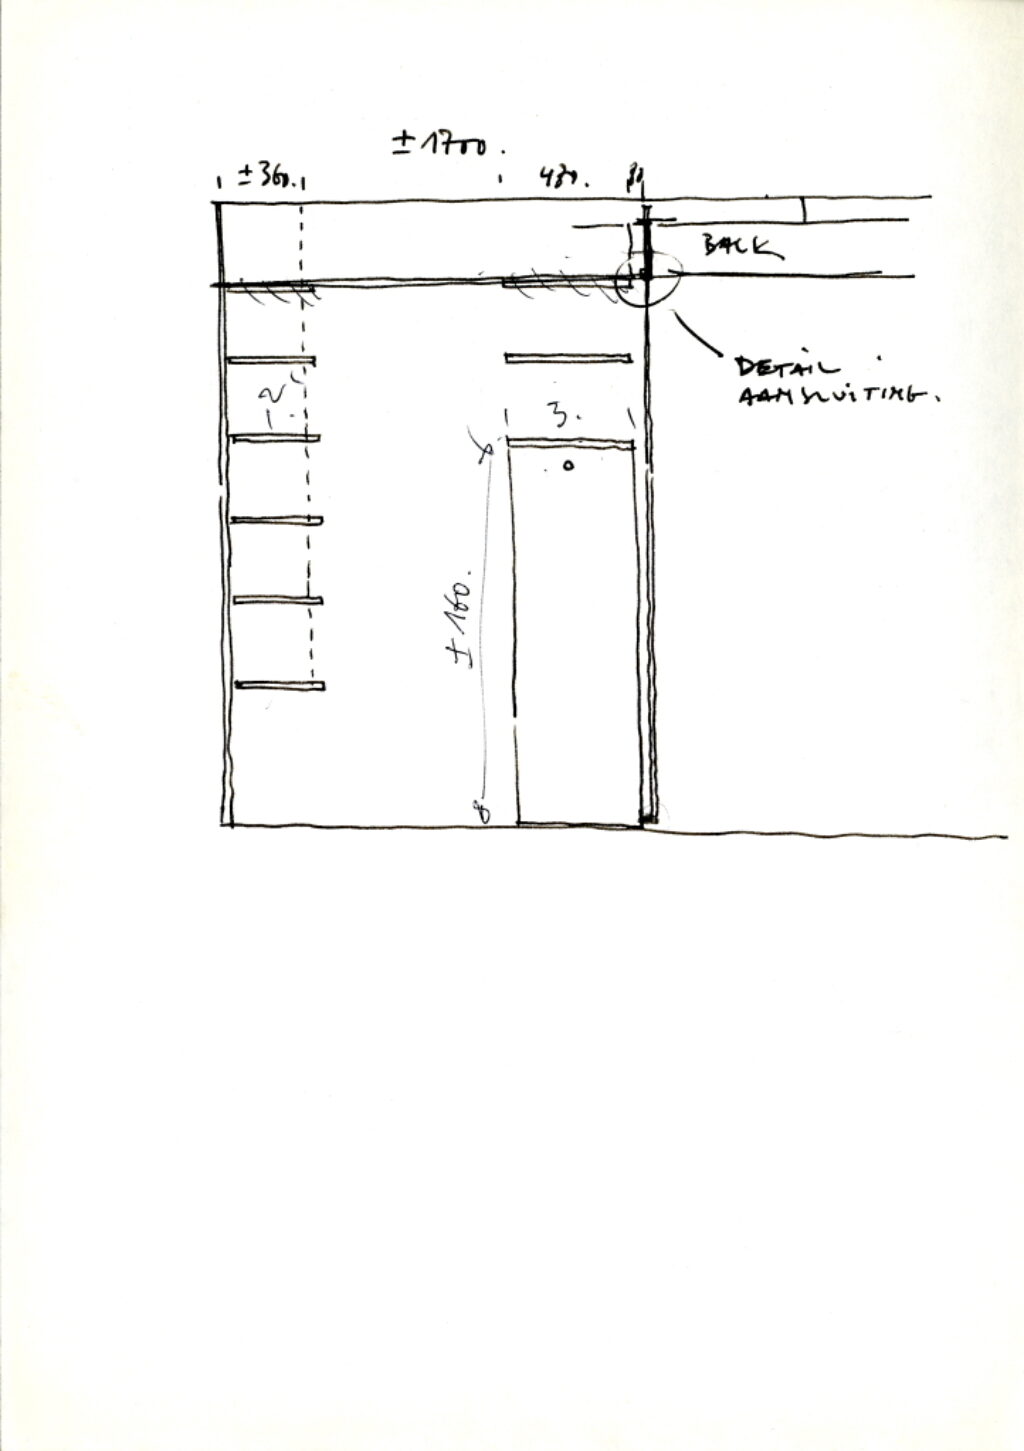 ± 1700.
± 360.
430.
80
BALK
DETAIL
AANSLUITING.
2.
3.
± 160.